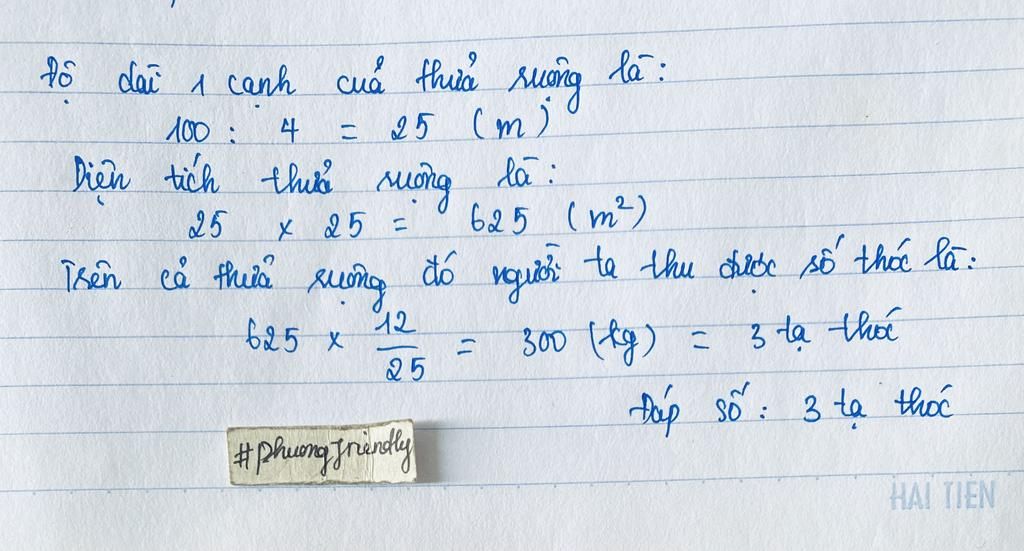 Độ dài 1 cạnh của thửa ruộng là:
100 : 4 = 25 (m)
Diện tích thửa ruộng là:
25 x 25 = 625 (m²)
Trên cả thửa ruộng đó người ta thu được số thóc là:
625 x 12/25 = 300 (kg) = 3 tạ thóc
Đáp số: 3 tạ thóc
#phuongfriendly
HAI TIEN